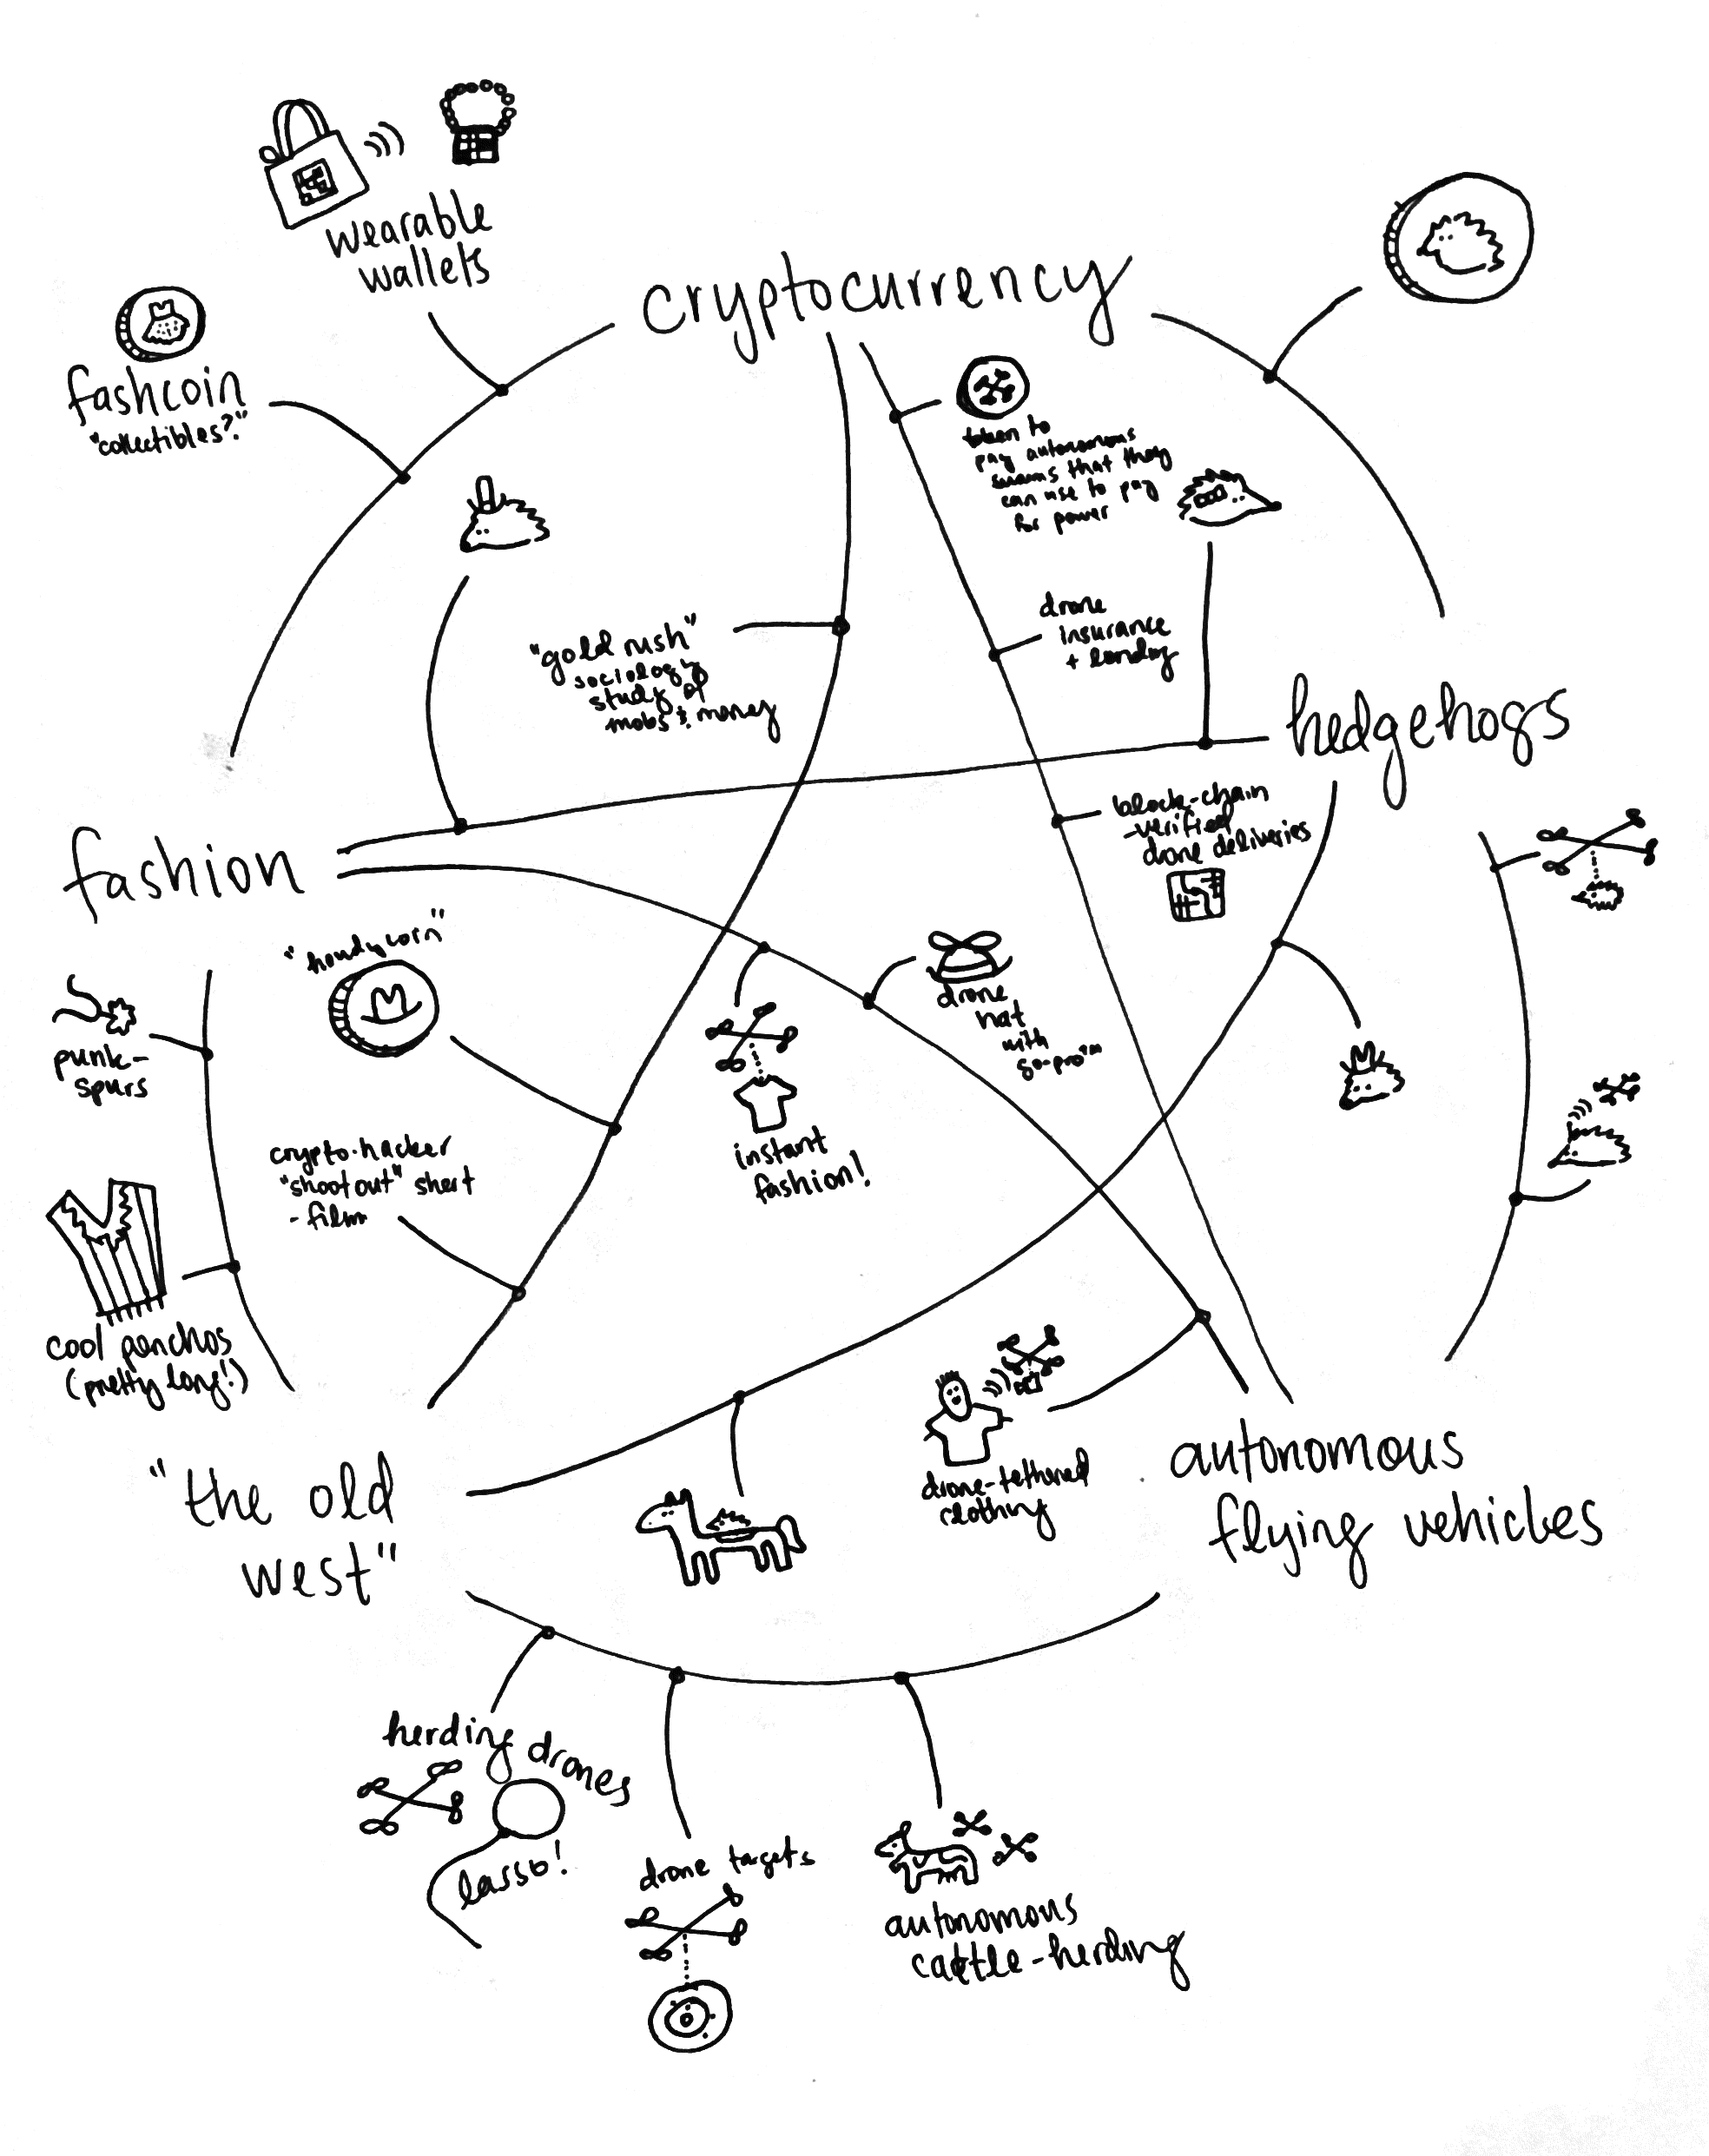 wearable
wallets
cryptocurrency
fashcoin
"collectibles?"
token to
pay autonomous
swarms that they
can use to pay
for power
drone
insurance
+ lending
"gold rush"
sociology
study of
mobs & money
hedgehogs
block-chain
-verified
drone deliveries
fashion
"howdycoin"
drone
hat
with
go-pro™
punk-
spurs
instant
fashion!
crypto-hacker
"shoot out" short
-film
cool ponchos
(pretty long!)
drone-tethered
clothing
"the old
west"
autonomous
flying vehicles
herding drones
lasso!
drone targets
autonomous
cattle-herding